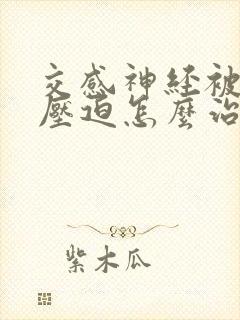 交感神经被
壓迫怎麽治
紫木瓜